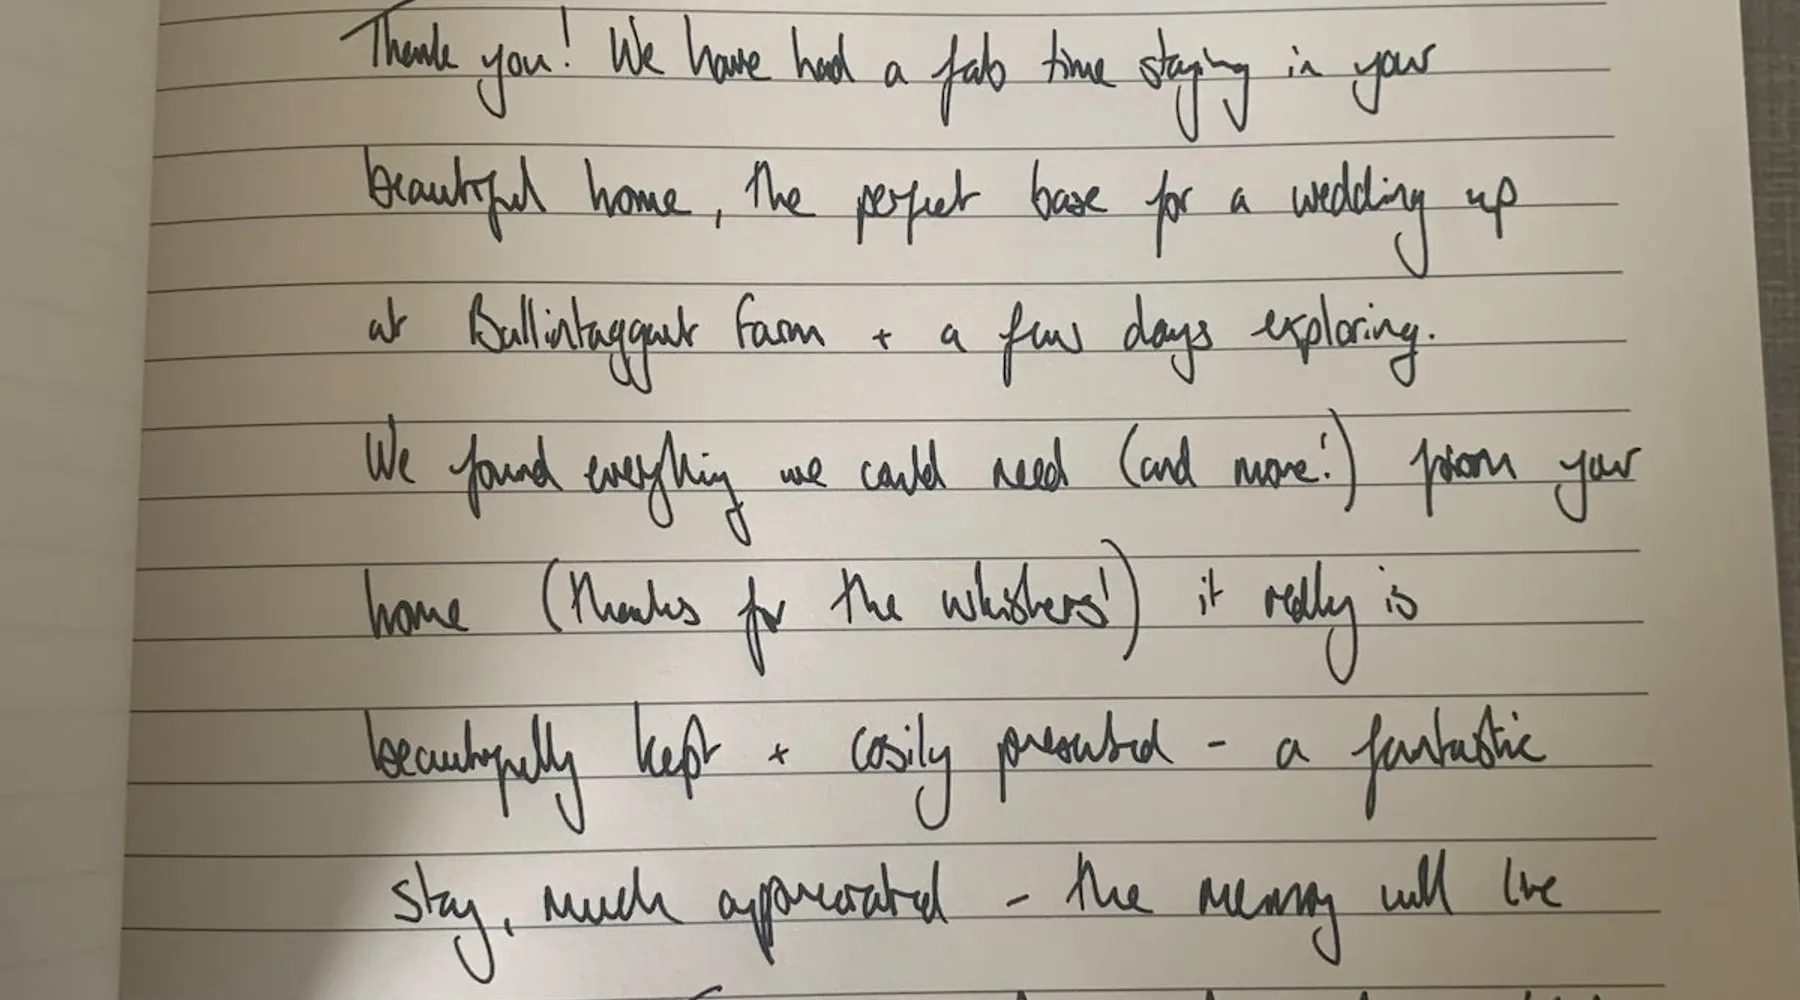 Thank you! We have had a fab time staying in your
beautiful home, the perfect base for a wedding up
at Ballintaggart Farm + a few days exploring.
We found everything we could need (and more!) from your
home (thanks for the whiskers!) it really is
beautifully kept + cosily presented - a fantastic
stay, much appreciated - the memory will live